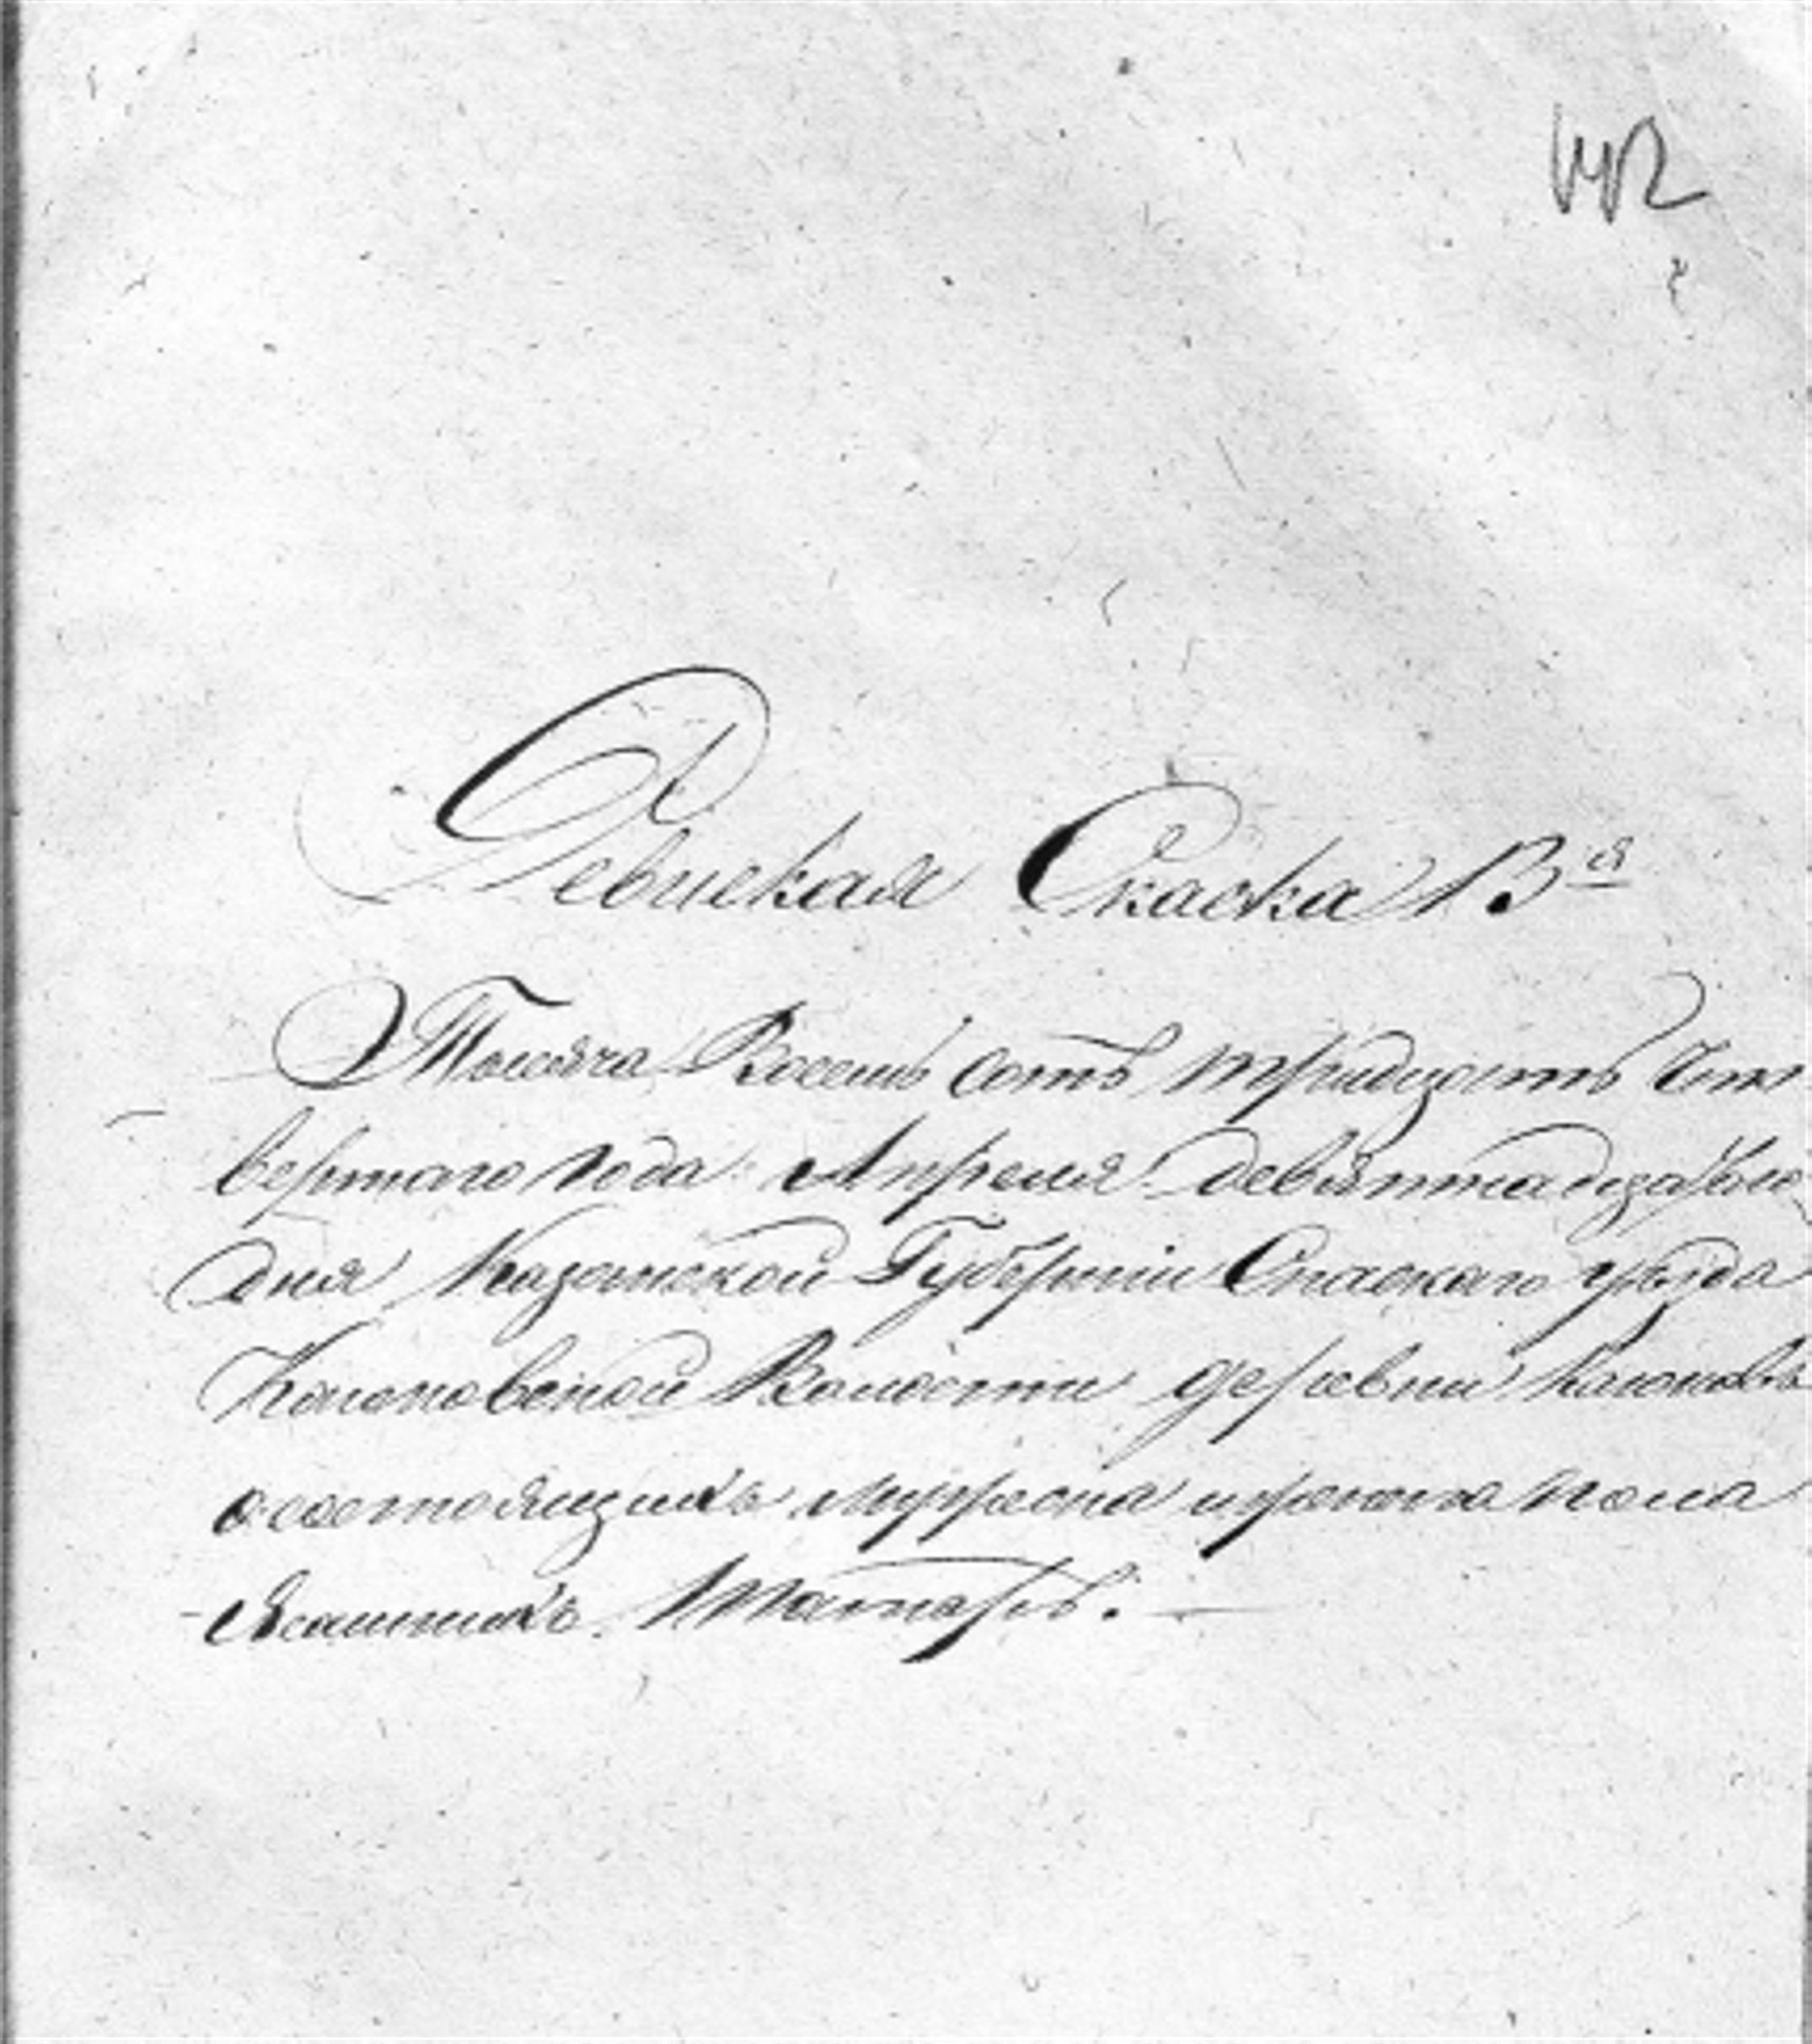 442
Ревиская Скаска 13ая
Тысяча Восемь сотъ тридцать Чет
вертаго года Апреля девятнадцатаго
дня Казанской Губернiи Спаскаго уѣзда
Волости деревни
о состоящихъ мужеска и женска пола
Ясашныхъ Татаръ.